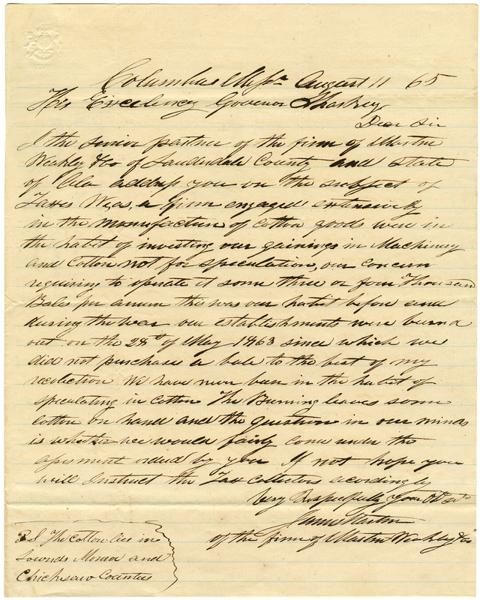 Columbus Mipa August 11 65
His Excelency Govenor Sharkey
Dear Sir
I the senior partner of the firm of Martin
Weakly & Co of Lauderdale County and state
of Ala address you on the subject of
Taxes We as a firm engaged extensively
in the manufacture of cotton goods were in
the habit of investing our gainings in Machinery
and Cotton not for speculation, our concern
requireing to operate it some three or four Thousand
Bales per annum this was our habit before and
during the war our establishments were burnd
out on the 28th of May 1863 since which we
did not purchase a bale to the best of my
recolection We have never been in the habit of
speculating in Cotton The Burning leaves some
cotton on hand and the question in our minds
is whether we would fairly come under the
assesment orderd by you If not hope you
will Instruct the Tax collectors acordingly
Very Respectfully Your Obt Svt
James Martin
of the firm of Martin Weakly & Co
P.S The cotton lies in
Lownds Monroe and
Chickesaw Counties